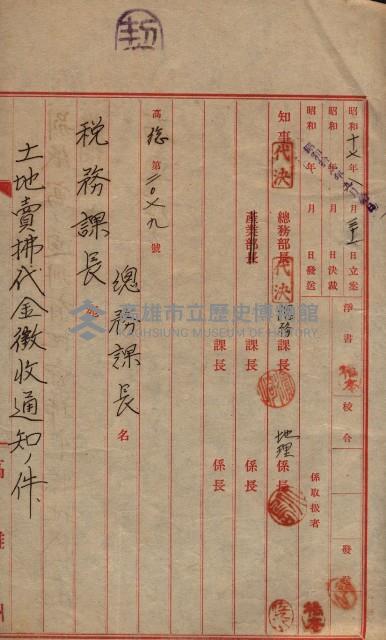 昭和十七年 月 日立案
昭和 年 月 日決裁
昭和 年 月 日發送
淨書
校合
發送
知事
代決
總務部長
代決
總務課長
地理係長
係取扱者
產業部長
課長
係長
課長
係長
高總第二〇七九號
總務課長名
稅務課長宛
土地賣拂代金徵收通知ノ件
高雄市立歷史博物館
KAOHSIUNG MUSEUM OF HISTORY
高雄州